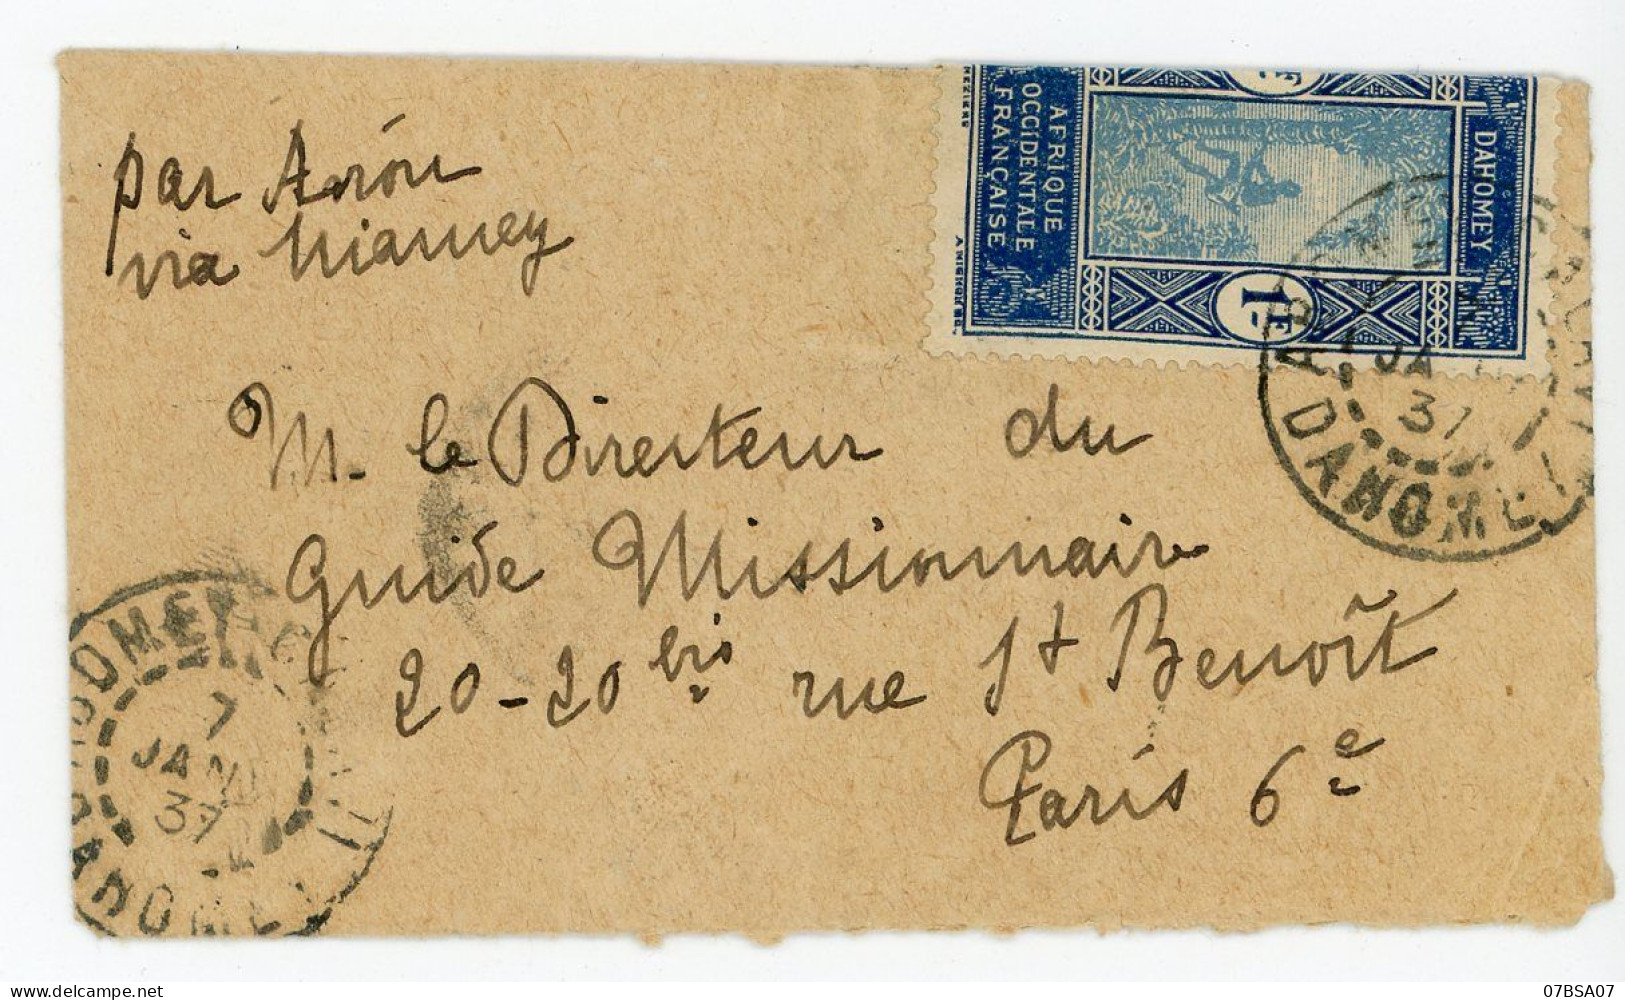 par Avion
via Niamey
AFRIQUE
OCCIDENTALE
FRANÇAISE
DAHOMEY
1F
JA
37
DAHOMEY
M. le Directeur du
Guide Missionnaire
20-20 bis rue St Benoît
Paris 6e
7
JANV
37
DAHOMEY
www.delcampe.net
07BSA07